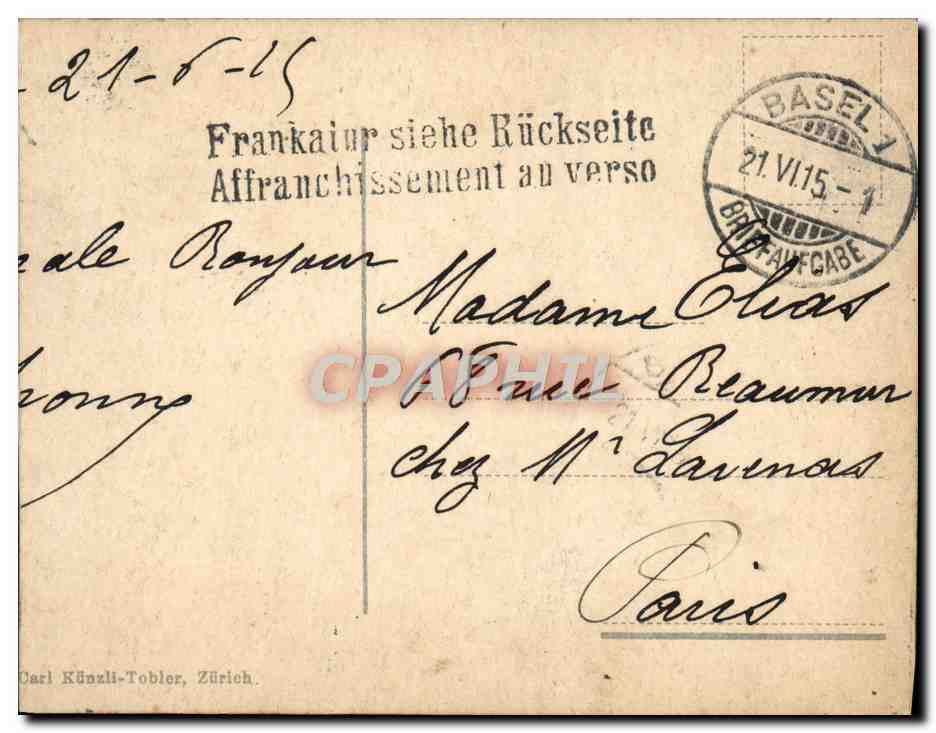 21-6-15
Frankatur siehe Rückseite
Affranchissement au verso
BASEL 1
21.VI.15.-1
BRIEFAUFGABE
Bonjour
Madame Elias
rue Beaumur
chez Mr Lavenas
Paris
CPAPHIL
Carl Künzli-Tobler, Zürich.